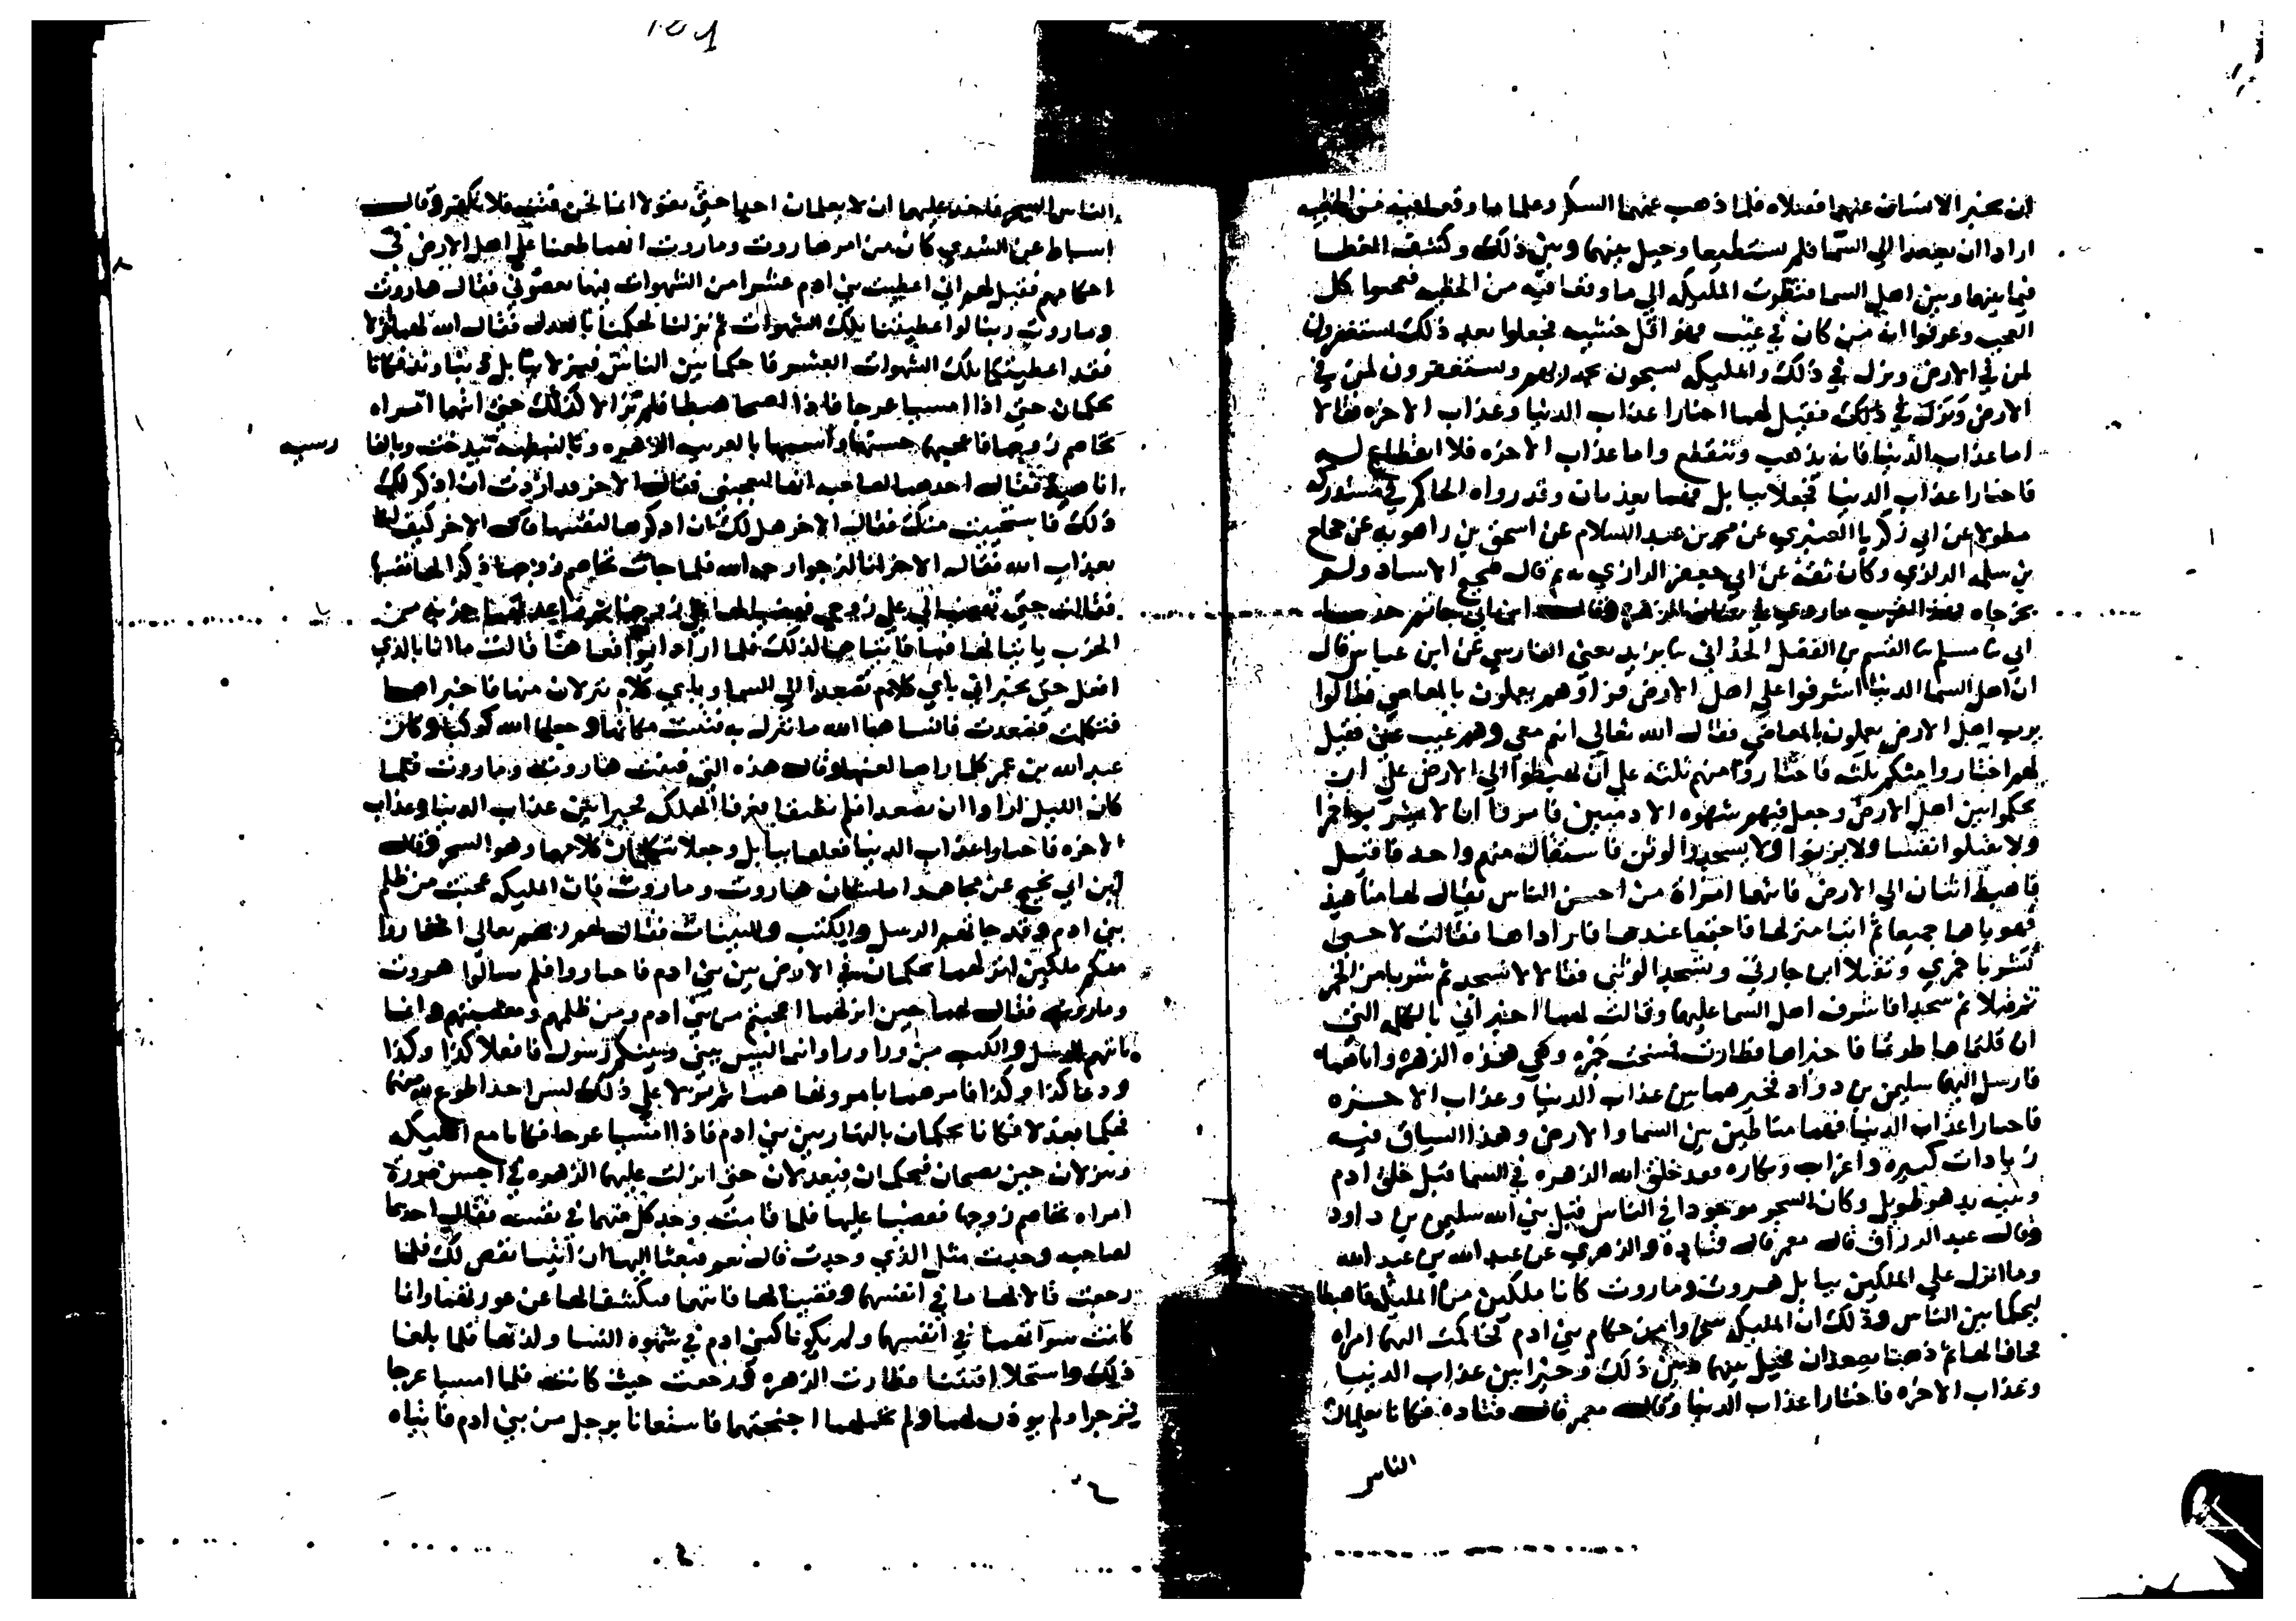 ان يخبر الانسان عنهما فقتلاه فلما ذهب عنهما السكر وعلما ما وقعا فيه من الخطيه
ارادا ان يصعدا الي السما فلم يستطيعا وحيل بينهما وبين ذلك وكشف الغطا
فيما بينهما وبين اهل السما فنظرت المليكه الي ما وقعا فيه من الخطيه فعجبوا كل
العجب وعرفوا انه من كان في غيب فهو اقل خشيه فجعلوا بعد ذلك يستغفرون
لمن في الارض ونزل في ذلك والمليكه يسبحون بحمد ربهم ويستغفرون لمن في
الارض ونزل في ذلك فقيل لهما اختارا عذاب الدنيا وعذاب الاخره فقالا
اما عذاب الدنيا فانه يذهب وينقطع واما عذاب الاخره فلا انقطاع له
فاختارا عذاب الدنيا فجعلا ببابل فهما يعذبان وقد رواه الحاكم في مستدركه
مطولا عن ابي زكريا العنبري عن محمد بن عبد السلام عن اسحق بن راهويه عن حكام
بن سلم الرازي وكان ثقة عن ابي جعفر الرازي به ثم قال صحيح الاسناد ولم
يخرجاه فهذا اقرب ما روي في شان الزهره وقال ابن ابي حاتم حدثنا
ابي ثنا مسلم ثنا القسم بن الفضل الحذاني ثنا يزيد يعني الفارسي عن ابن عباس قال
ان اهل السما الدنيا اشرفوا علي اهل الارض فراوهم يعملون بالمعاصي فقالوا
يرب اهل الارض يعملون بالمعاصي فقال الله تعالي انتم معي وهم غيب عني فقيل
لهم اختاروا منكم ثلثه فاختاروا منهم ثلثه علي ان يهبطوا الي الارض علي ان
يحكموا بين اهل الارض وجعل فيهم شهوه الادميين فامروا ان لا يشربوا خمرا
ولا يقتلوا نفسا ولا يزنوا ولا يسجدوا لوثن فاستقال منهم واحد فاقيل
فاهبط اثنان الي الارض فاتتهما امراة من احسن الناس يقال لها مناهيد
فهوياها جميعا ثم اتيا منزلها فاجتمعا عندها فاراداها فقالت لا حتي
تشربا خمري وتقتلا ابن جارتي وتسجدا لوثني فقالا لا نسجد ثم شربا من الخمر
ثم قتلا ثم سجدا فاشرف اهل السما عليهما وقالت لهما اخبراني بالكلمه التي
ان قلتماها طرتما فاخبراها فطارت فمسخت جمره وهي هذه الزهره واما هما
فارسل اليهما سليمن بن دواد فخيرهما بين عذاب الدنيا وعذاب الاخره
فاختارا عذاب الدنيا فهما مناطين بين السما والارض وهذا السياق فيه
زيادات كبيره واغراب ونكاره فعند خلق الله الزهره في السما قبل خلق ادم
وبنيه بدهر طويل وكان السحر موجودا في الناس قبل نبي الله سليمن بن داود
وقال عبد الرزاق قال معمر قال قتادة والزهري عن عبد الله بن عبد الله
وما انزل علي الملكين ببابل هروت وماروت كانا ملكين من المليكه فاهبطا
ليحكما بين الناس وذلك ان المليكه سخروا من حكام بني ادم فحاكمت اليهما امراه
فحافا لها ثم ذهبا يصعدان فحيل بينهما وبين ذلك وخيرا بين عذاب الدنيا
وعذاب الاخره فاختارا عذاب الدنيا وقال معمر قال قتاده فكانا يعلمان
الناس
الناس السحر فاخذ عليهما ان لا يعلمان احدا حتي يقولا انما نحن فتنه فلا تكفر وقال
اسباط عن السدي كان من امر هاروت وماروت انهما طعنا علي اهل الارض في
احكامهم فقيل لهم اني اعطيت بني ادم عشرا من الشهوات فبها يعصوني فقال هاروت
وماروت ربنا لو اعطيتنا تلك الشهوات ثم نزلنا لحكمنا بالعدل فقال الله لهما انزلا
فقد اعطيتكما تلك الشهوات العشر فاحكما بين الناس فنزلا ببابل دنباوند فكانا
يحكمان حتي اذا امسيا عرجا فاذا اصبحا هبطا فلم يزالا كذلك حتي اتتهما امراه
تخاصم زوجها فاعجبهما حسنها واسمها بالعربيه الزهره وبالنبطيه بيدخت وبالفا
رسيه
اناهيد فقال احدهما لصاحبه انها لتعجبني فقال الاخر قد اردت ان اذكر لك
ذلك فاستحييت منك فقال الاخر هل لك ان اذكرها لنفسها قال الاخر كيف لنا
بعذاب الله فقال الاخر انا لنرجوا رحمه الله فلما جات تخاصم زوجها ذكرا لها نفسها
فقالت حتي تقضيا لي علي زوجي فقضيا لها علي زوجها ثم واعدتهما خربه من
الخرب ياتيانها فيها فاتياها لذلك فلما اراد ان يواقعها قالت ما انا بالذي
افعل حتي تخبراني باي كلام تصعدا الي السما وباي كلام تنزلان منها فاخبراها
فتكلمت فصعدت فانساها الله ما تنزل به فثبتت مكانها وجعلها الله كوكبا وكان
عبد الله بن عمر كلما راها لعنها وقال هذه التي فتنت هاروت وماروت فلما
كان الليل ارادا ان يصعدا فلم يطيقا فعرفا الهلك فخيرا بين عذاب الدنيا وعذاب
الاخره فاختارا عذاب الدنيا فعلقا ببابل وجعلا يكلمان كلامهما وهو السحر وقال
ابن ابي نجيح عن مجاهد اما شان هاروت وماروت فان المليكه عجبت من ظلم
بني ادم وقد جاتهم الرسل والكتب والبينات فقال لهم ربهم تعالي اختاروا
منكم ملكين انزلهما يحكمان في الارض بين بني ادم فاختاروا فلم يسالوا هروت
وماروت فقال لهما حين انزلهما اعجبتم من بني ادم ومن ظلمهم ومعصيتهم وانما
تاتيهم الرسل والكتب من ورا ورا وانما ليس بيني وبينكم رسول فافعلا كذا وكذا
ودعا كذا وكذا فامرهما بامر ونهاهما ثم نزلا علي ذلك ليس احد اطوع لله منهما
فحكما فعدلا فكانا يحكمان بالنهار بين بني ادم فاذا امسيا عرجا فكانا مع المليكه
وينزلان حين يصبحان فيحكمان فيعدلان حتي انزلت عليهما الزهره في احسن صورة
امراه تخاصم زوجها فقضيا عليها فلما قامت وجد كل منهما في نفسه فقال احدهما
لصاحبه وجدت مثل الذي وجدت قال نعم فبعثا اليها ان ايتنا نقض لك فلما
رجعت قالا لها ما في انفسهما وقضيا لها فاتتهما فكشفا لها عن عورتهما وانما
كانت سواتهما في انفسهما ولم يكونا كبني ادم في شهوه النسا ولذتها فلما بلغا
ذلك واستحلا افتتنا فطارت الزهره فرجعت حيث كانت فلما امسيا عرجا
فزجرا ولم يوذن لهما ولم تحملهما اجنحتهما فاستغاثا برجل من بني ادم فاتياه